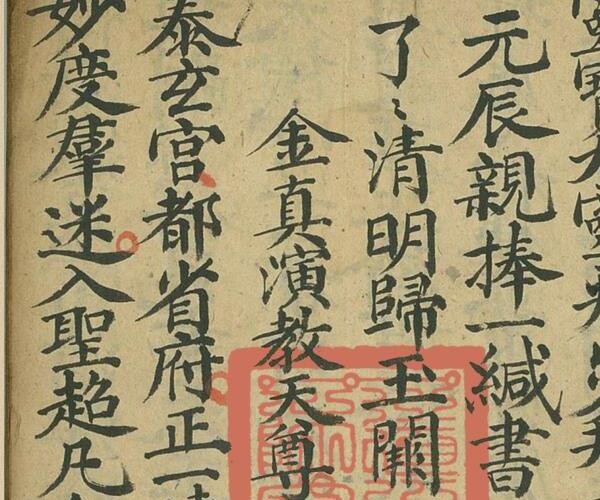 元辰親捧一緘書
了〻清明歸玉闕
金真演教天尊
泰玄宮都省府正一
妙度羣迷入聖超凡